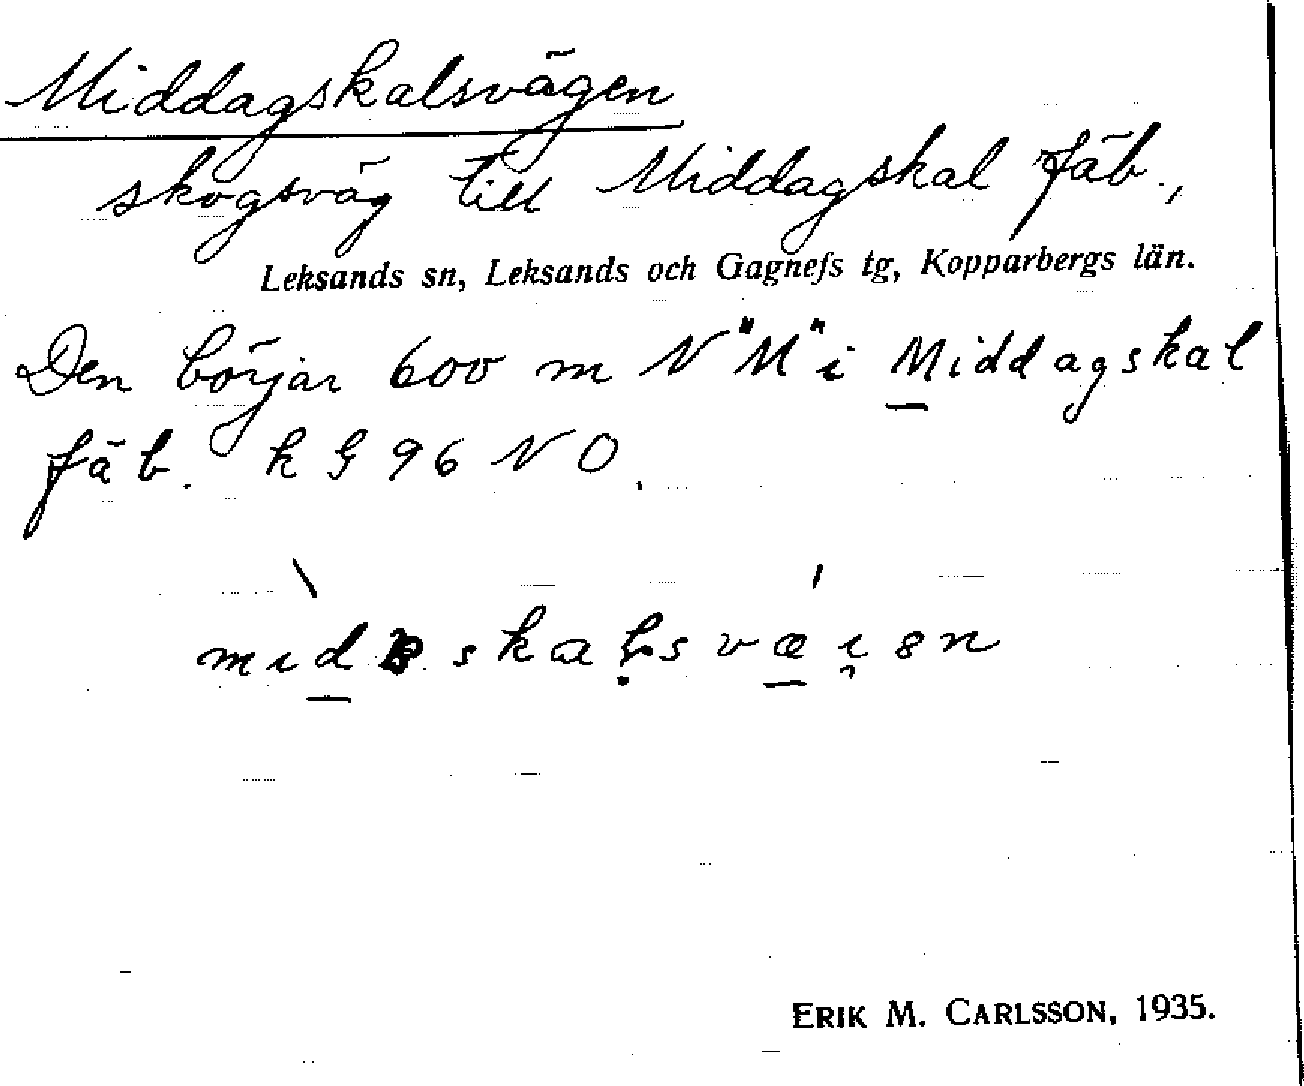 Middagskalsvägen
skogsväg till Middagskal fäb.,
Leksands sn, Leksands och Gagnefs tg, Kopparbergs län.
Den börjar 600 m N "M" i Middagskal
fäb. k G 96 N O.
ERIK M. CARLSSON, 1935.